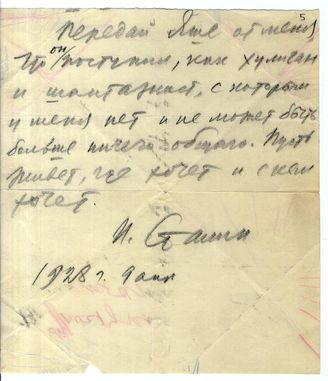 5
Передай Яше от меня,
что он поступил, как хулиган
и шантажист, с которым
у меня нет и не может быть
больше ничего общего. Пусть
живет, где хочет и с кем
хочет.
И. Сталин
1928 г. 9 апр